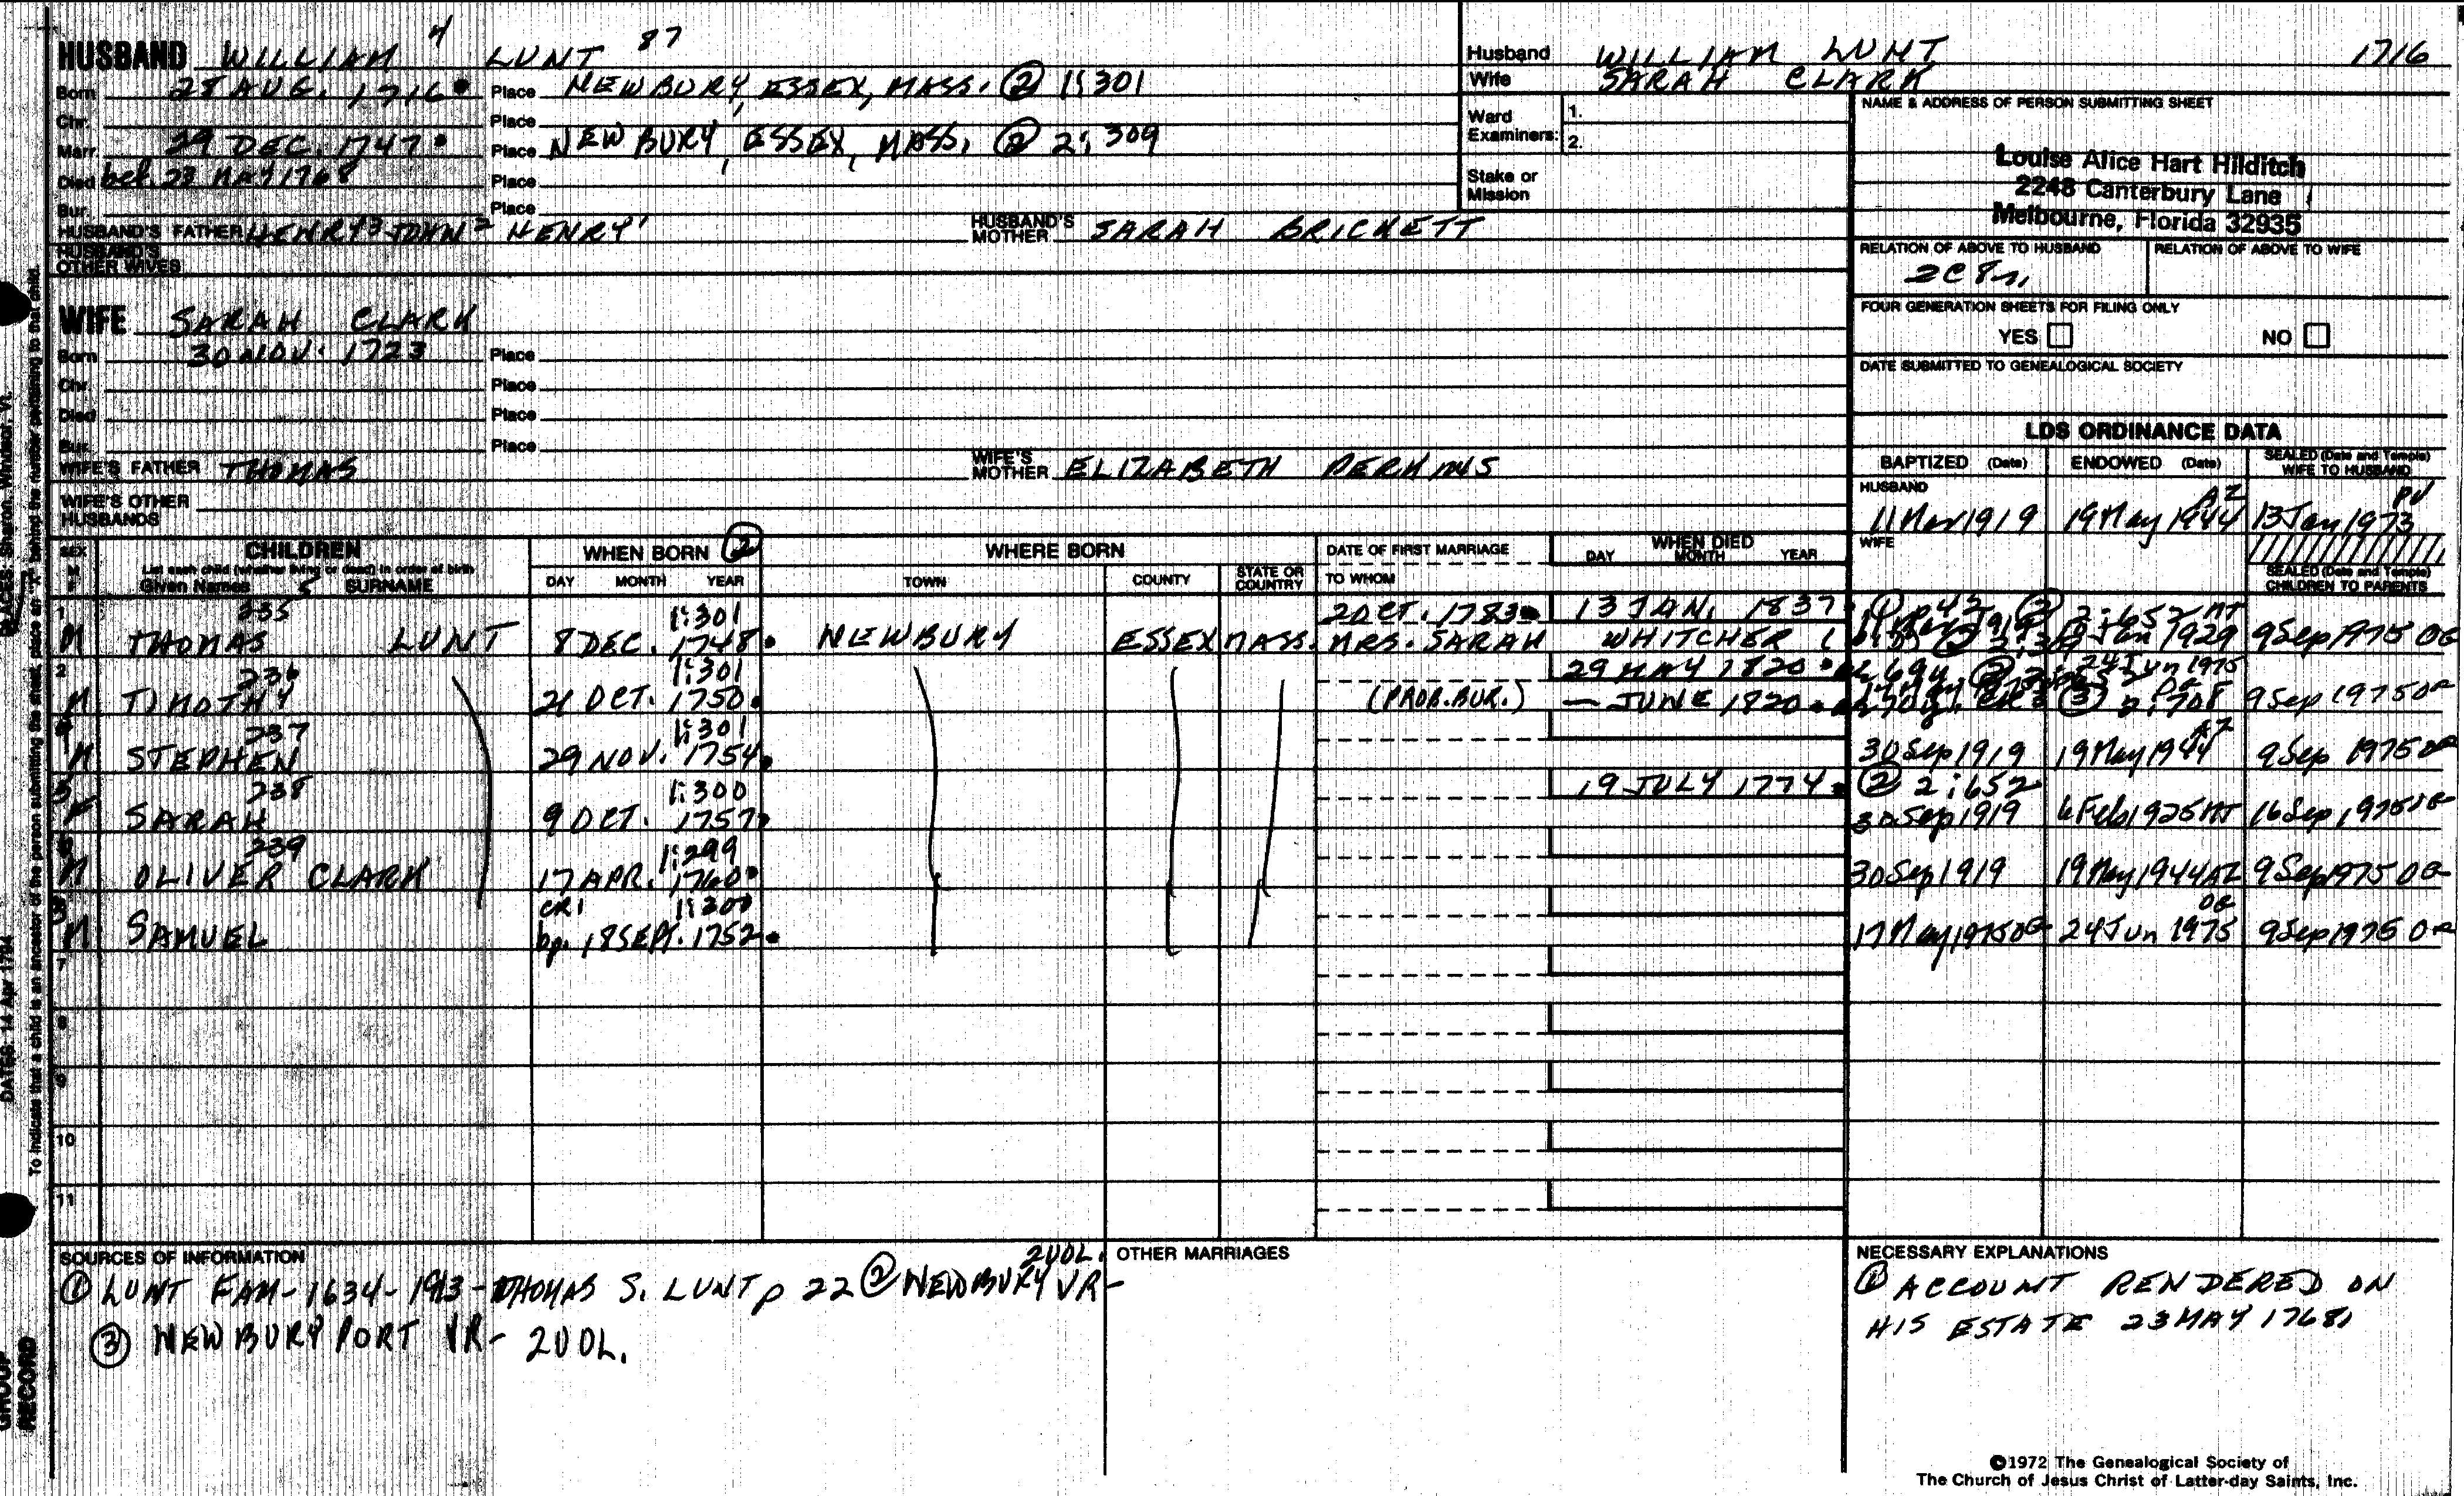 HUSBAND WILLIAM 4 LUNT 87
Born 28 AUG. 1716 Place NEWBURY, ESSEX, MASS. ② 1:301
Chr. Place
Marr. 29 DEC. 1747 Place NEWBURY, ESSEX, MASS. ② 2:309
Died bef. 23 MAY 1768 Place
Bur. Place
HUSBAND'S FATHER HENRY 3 JOHN 2 HENRY 1 HUSBAND'S MOTHER SARAH BRICKETT
HUSBAND'S OTHER WIVES
WIFE SARAH CLARK
Born 30 NOV. 1723 Place
Chr. Place
Died Place
Bur. Place
WIFE'S FATHER THOMAS WIFE'S MOTHER ELIZABETH PERKINS
WIFE'S OTHER HUSBANDS
Husband WILLIAM LUNT 1716
Wife SARAH CLARK
Ward Examiners: 1.
2.
Stake or Mission
NAME & ADDRESS OF PERSON SUBMITTING SHEET
Louise Alice Hart Hilditch
2248 Canterbury Lane
Melbourne, Florida 32935
RELATION OF ABOVE TO HUSBAND RELATION OF ABOVE TO WIFE
2C8r,
FOUR GENERATION SHEETS FOR FILING ONLY
YES NO
DATE SUBMITTED TO GENEALOGICAL SOCIETY
LDS ORDINANCE DATA
BAPTIZED (Date) ENDOWED (Date) SEALED (Date and Temple) WIFE TO HUSBAND
HUSBAND
11 Mar 1919 19 May 1944 AZ 13 Jan 1973 PV
WIFE
SEALED (Date and Temple) CHILDREN TO PARENTS
SEX M F
CHILDREN
List each child (whether living or dead) in order of birth
Given Names 5 SURNAME
WHEN BORN ②
DAY MONTH YEAR
WHERE BORN
TOWN COUNTY STATE OR COUNTRY
DATE OF FIRST MARRIAGE
TO WHOM
WHEN DIED
DAY MONTH YEAR
1 235 1:301 2 OCT. 1783 13 JAN. 1837 ① p 43 ② 2:652
M THOMAS LUNT 8 DEC. 1748 NEWBURY ESSEX MASS. MRS. SARAH WHITCHER 1929 9 Sep 1975 OG
2 236 1:301 29 MAY 1820 24 Jun 1975
M TIMOTHY 21 OCT. 1750 (PROB. BUR.) — JUNE 1820 ③ 2:708 9 Sep 1975 OG
4 237 1:301
M STEPHEN 29 NOV. 1754 30 Sep 1919 19 May 1944 AZ 9 Sep 1975 OG
5 238 1:300 19 JULY 1774 ② 2:652
F SARAH 9 OCT. 1757 30 Sep 1919 6 Feb 1925 MT 16 Sep 1975 OG
239 1:299
M OLIVER CLARK 17 APR. 1760 30 Sep 1919 19 May 1944 AZ 9 Sep 1975 OG
3 CR1 1:300
M SAMUEL bp. 18 SEPT. 1752 17 May 1975 OG 24 Jun 1975 OG 9 Sep 1975 OG
7
8
9
10
11
SOURCES OF INFORMATION
① LUNT FAM - 1634 - 1913 - THOMAS S. LUNT p 22 ② NEWBURY VR - 2 VOL.
③ NEWBURYPORT VR - 2 VOL.
OTHER MARRIAGES
NECESSARY EXPLANATIONS
① ACCOUNT RENDERED ON
HIS ESTATE 23 MAY 1768,
©1972 The Genealogical Society of
The Church of Jesus Christ of Latter-day Saints, Inc.
PLACES: Sharon, Windsor, Vt.
DATES: 14 Apr 1794
To indicate that a child is an ancestor of the person submitting the sheet, place an "X" behind the number pertaining to that child.
GROUP RECORD